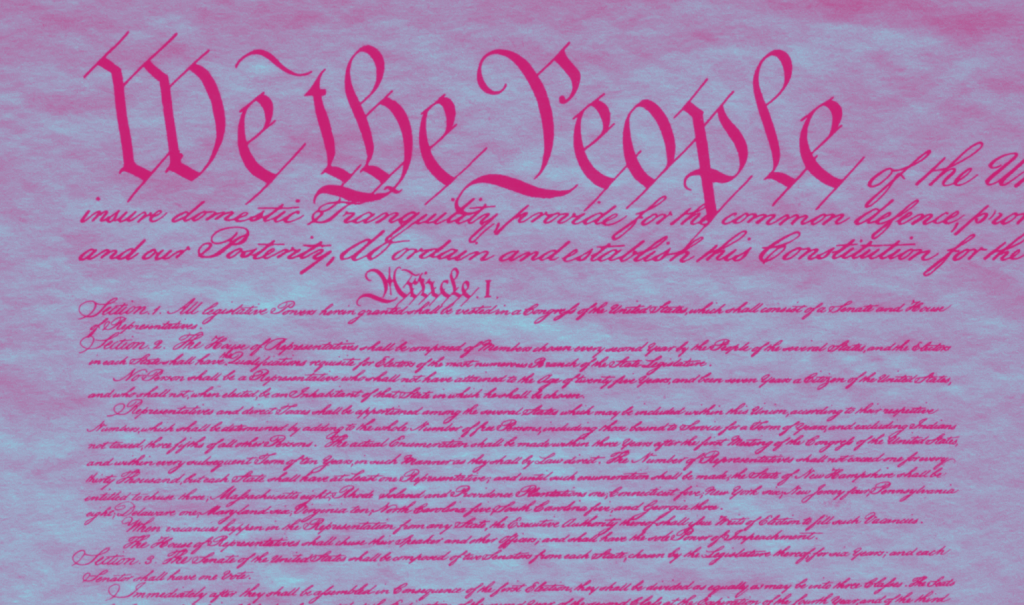 We the People of the Un
insure domestic Tranquility, provide for the common defence, pro
and our Posterity, do ordain and establish this Constitution for the
Article. I.
Section. 1. All legislative Powers herein granted shall be vested in a Congress of the United States, which shall consist of a Senate and House
of Representatives.
Section. 2. The House of Representatives shall be composed of Members chosen every second Year by the People of the several States, and the Electors
in each State shall have the Qualifications requisite for Electors of the most numerous Branch of the State Legislature.
No Person shall be a Representative who shall not have attained to the Age of twenty five Years, and been seven Years a Citizen of the United States,
and who shall not, when elected, be an Inhabitant of that State in which he shall be chosen.
Representatives and direct Taxes shall be apportioned among the several States which may be included within this Union, according to their respective
Numbers, which shall be determined by adding to the whole Number of free Persons, including those bound to Service for a Term of Years, and excluding Indians
not taxed, three fifths of all other Persons. The actual Enumeration shall be made within three Years after the first Meeting of the Congress of the United States,
and within every subsequent Term of ten Years, in such Manner as they shall by Law direct. The Number of Representatives shall not exceed one for every
thirty Thousand, but each State shall have at Least one Representative; and until such enumeration shall be made, the State of New Hampshire shall be
entitled to chuse three, Massachusetts eight, Rhode Island and Providence Plantations one, Connecticut five, New York six, New Jersey four, Pennsylvania
eight, Delaware one, Maryland six, Virginia ten, North Carolina five, South Carolina five, and Georgia three.
When vacancies happen in the Representation from any State, the Executive Authority thereof shall issue Writs of Election to fill such Vacancies.
The House of Representatives shall chuse their Speaker and other Officers; and shall have the sole Power of Impeachment.
Section. 3. The Senate of the United States shall be composed of two Senators from each State, chosen by the Legislature thereof, for six Years; and each
Senator shall have one Vote.
Immediately after they shall be assembled in Consequence of the first Election, they shall be divided as equally as may be into three Classes. The Seats